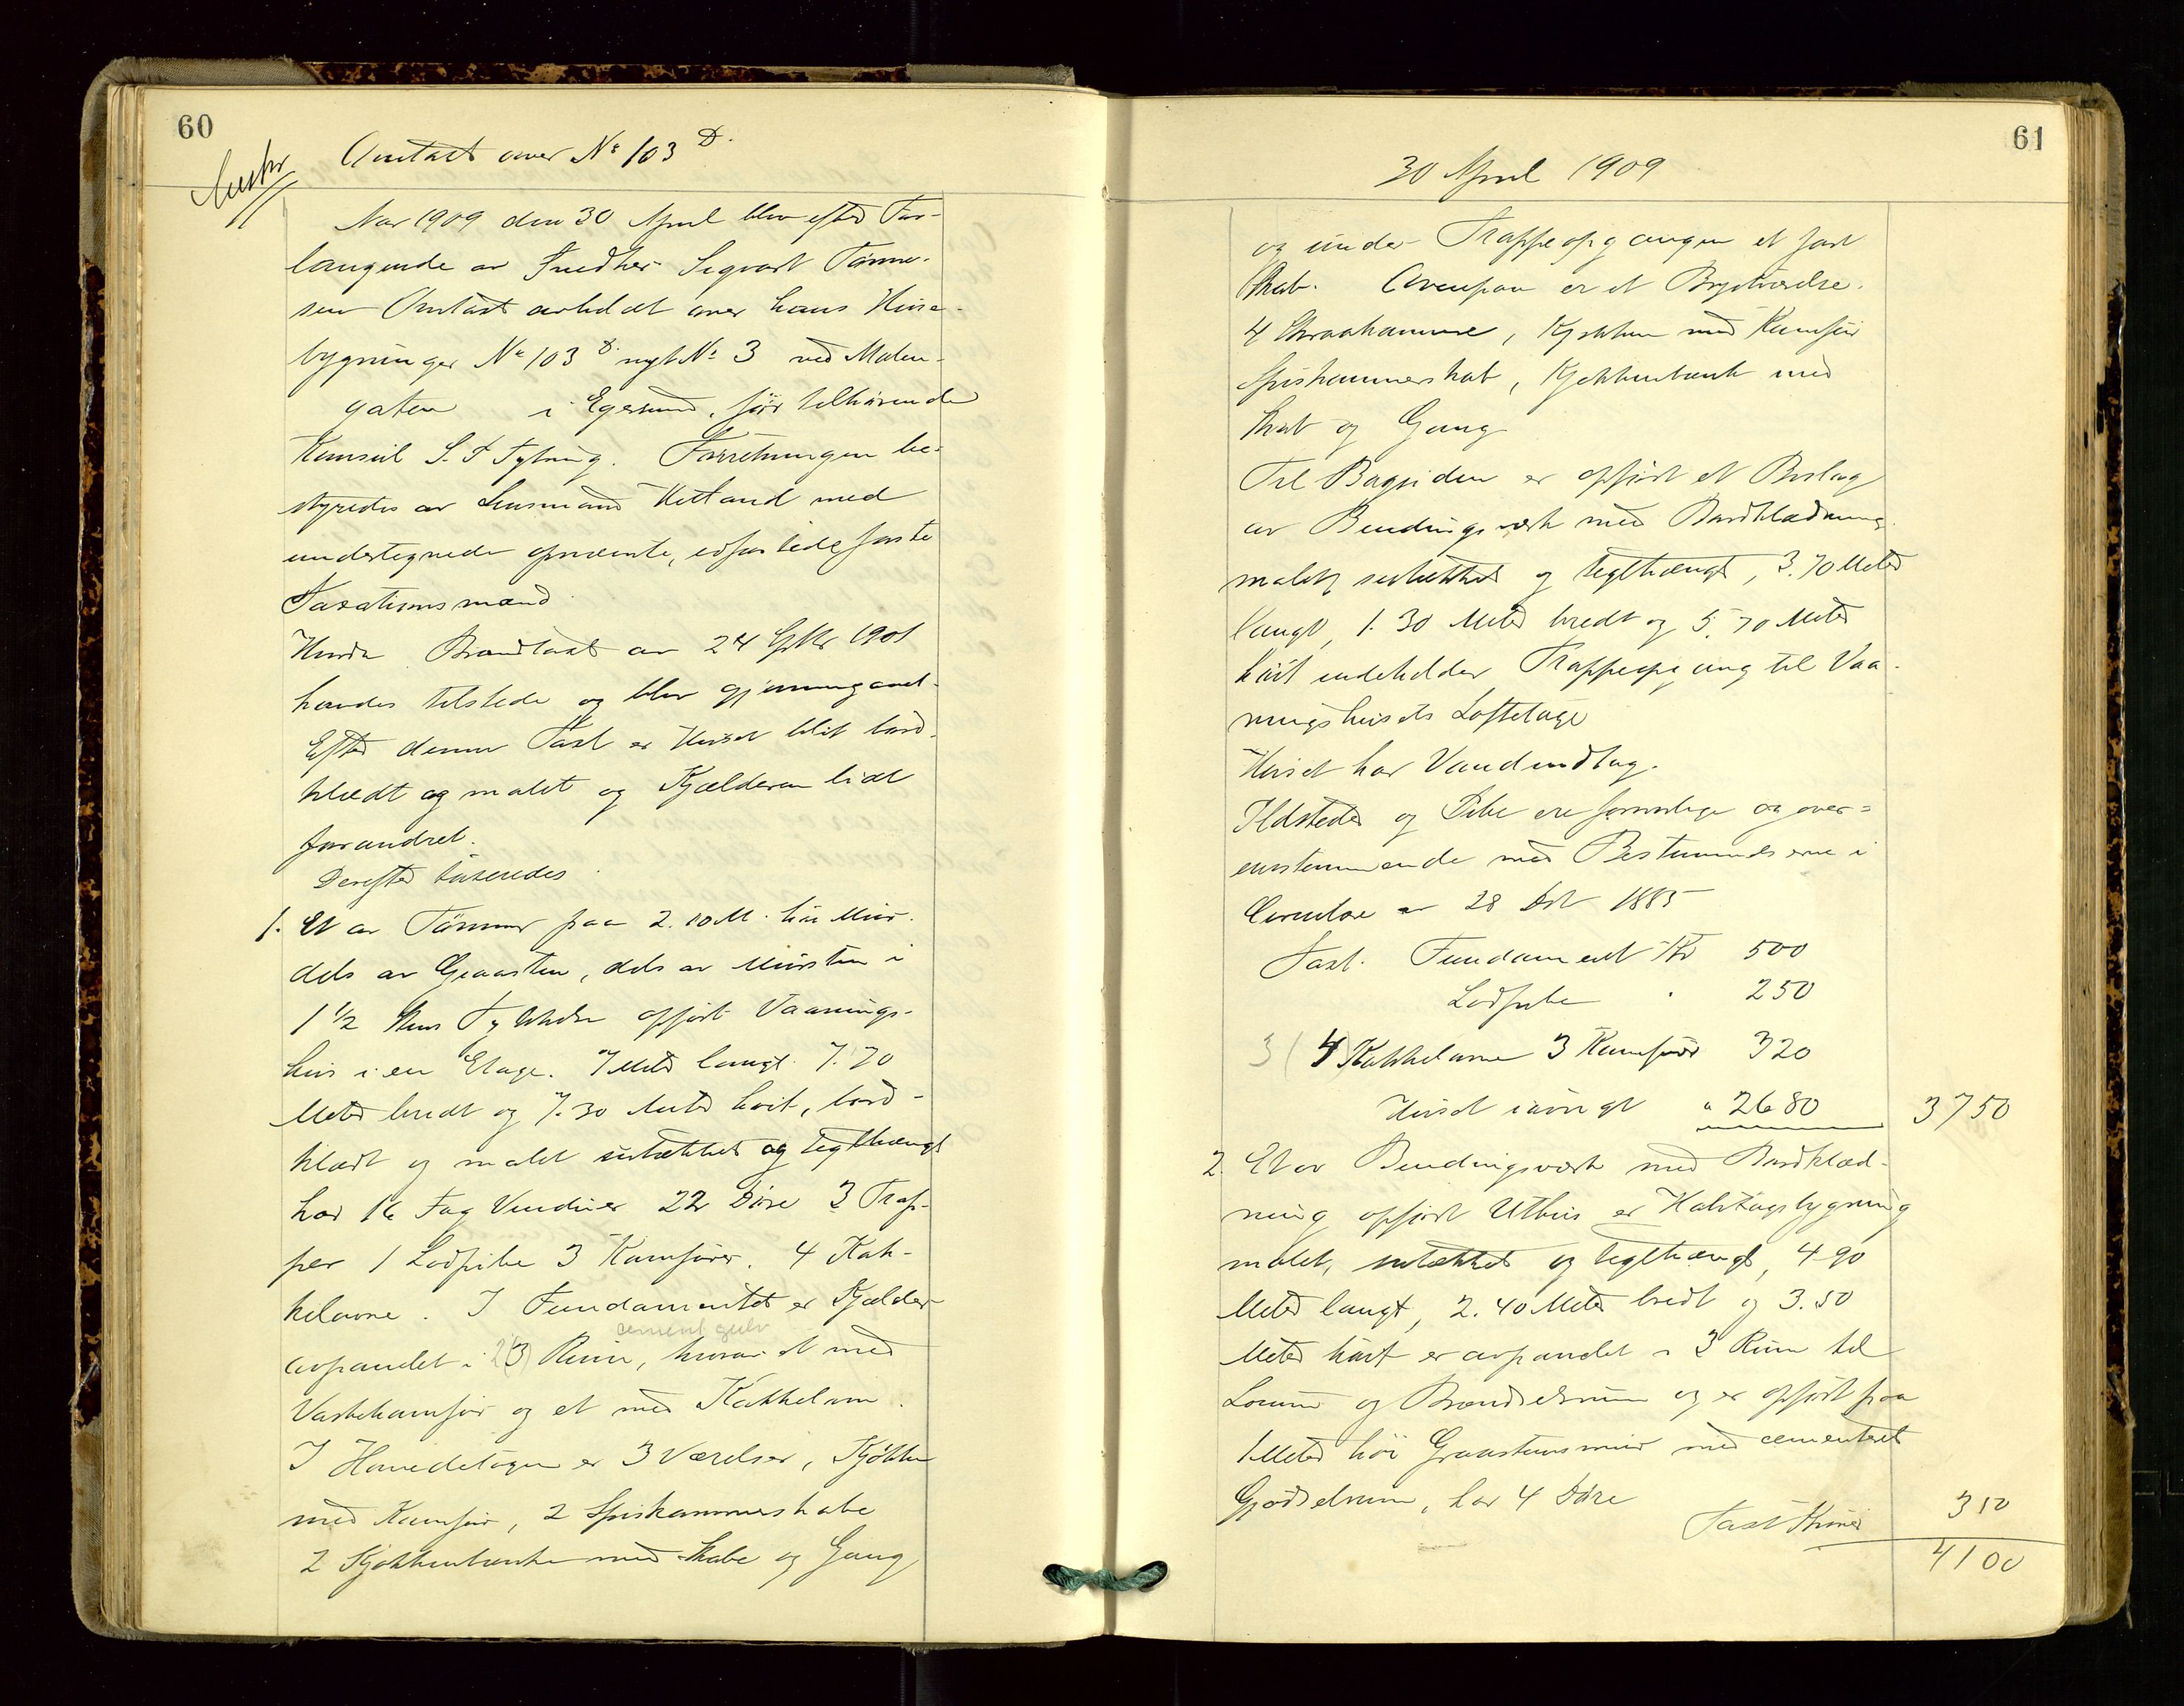 60
Omtaxt over No 103 D.
Aar 1909 den 30 April blev efter For-
langende av Snedker Sigvart Tønne-
sen Omtaxt avholdt over hans Huse-
bygninger No 103 D. nyt No 3 ved Malen-
gaten i Egersund, før tilhørende
Konsul S. T. Forretningen be-
styredes av Lensmand Hetland med
undertegnede opnævnte, edfæstede faste
Taxationsmænd
Husets Brandtaxt av 24 Septbr 1901
havdes tilstede og blev gjennemgaaet.
Efter denne Taxt er Huset blit bord-
klædt og malet og Kjælderen lidt
forandret.
Derefter taxeredes
1. Et av Tømmer paa 2.10 M. høi Mur.
dels av Graasten, dels av Mursten i
1 1/2 Stens Tykkelse opført Vaanings-
hus i en Etage. 7 Meter langt 7.70
Meter bredt og 7.30 Meter høit, bord-
klædt og malet sutækket og teglhængt
har 16 Fag Vinduer 22 Døre 3 Trap-
per 1 Lodpibe 3 Komfurer. 4 Kak-
kelovne. I Fundamentet er Kjælder
cement gulv
avpanelet i 2 (3) Rum, hvorav et med
Vaskekomfur og et med Kakkelovn.
I Hovedetagen er 3 Værelser, Kjøkken
med Komfur, 2 Spiskammerskabe
2 Kjøkkenbænke med Skabe og Gang
61
30 April 1909
og under Trappeopgangen et fast
Skab. Ovenpaa er et Bryst værelse.
4 Skraakamre, Kjøkken med Komfur
Spiskammerskab, Kjøkkenbænk med
Skab og Gang
Til Bagsiden er opført et Bislag
av Bindingsverk med Bordklædning
malet, sutækket og teglhængt, 3.70 Meter
langt, 1.30 Meter bredt og 5.70 Meter
høit indeholder Trappeopgang til Vaa-
ningshusets Loftetage
Huset har Vandindtag.
Ildsteder og Pibe ere forsvarlige og over=
ensstemmende med Bestemmelserne i
Circulære av 28 Oct 1885
Taxt. Fundament Kr 500
Lodpibe " 250
3 (4) Kakkelovne 3 Komfurer 320
Huset iøvrigt " 2680 3750
2. Et av Bindingsverk med Bordklæd-
ning opført Uthus er Halvtagsbygning
malet, sutækket og teglhængt, 4.90
Meter langt, 2.40 Meter bredt og 3.50
Meter høit er avpanelet i 3 Rum til
Locum og Brændselsrum og er opført paa
1 Meter høi Graastensmur med cementeret
Gjødselrum, har 4 Døre
Taxt Kroner 350
4100